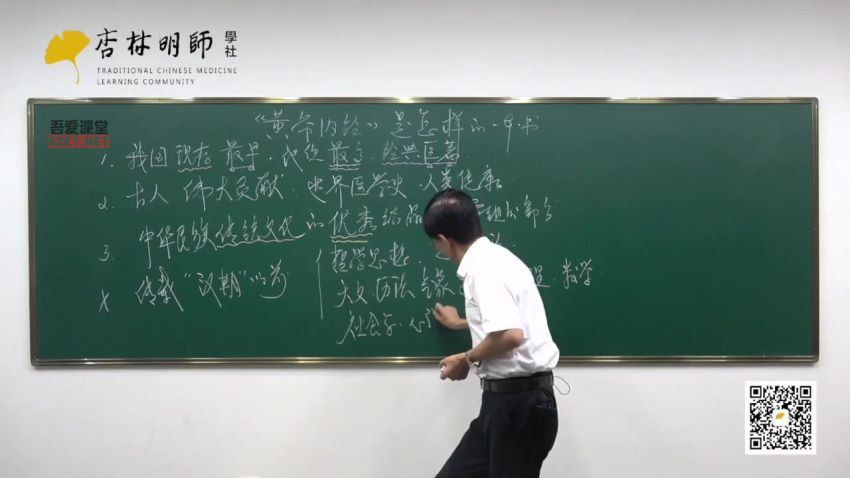 杏林明師
學社
TRADITIONAL CHINESE MEDICINE
LEARNING COMMUNITY
吾爱课堂
52KT.NET
《黄帝内经》是怎样的一部书
1. 我国现存最早、地位最高、经典医著
2. 古人伟大贡献：世界医学史、人类健康
3. 中华民族传统文化的优秀结晶 组成部分
4. 传载"汉朝"以前
哲学思想、
天文、历法、气象 数学
社会学、心